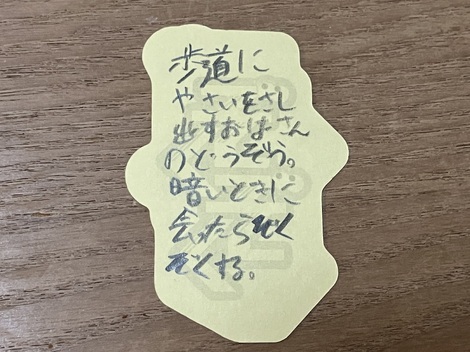 歩道に
やさいをさし
出すおばさん
のどうぞう。
暗いときに
会ったらぞく
ぞくする。